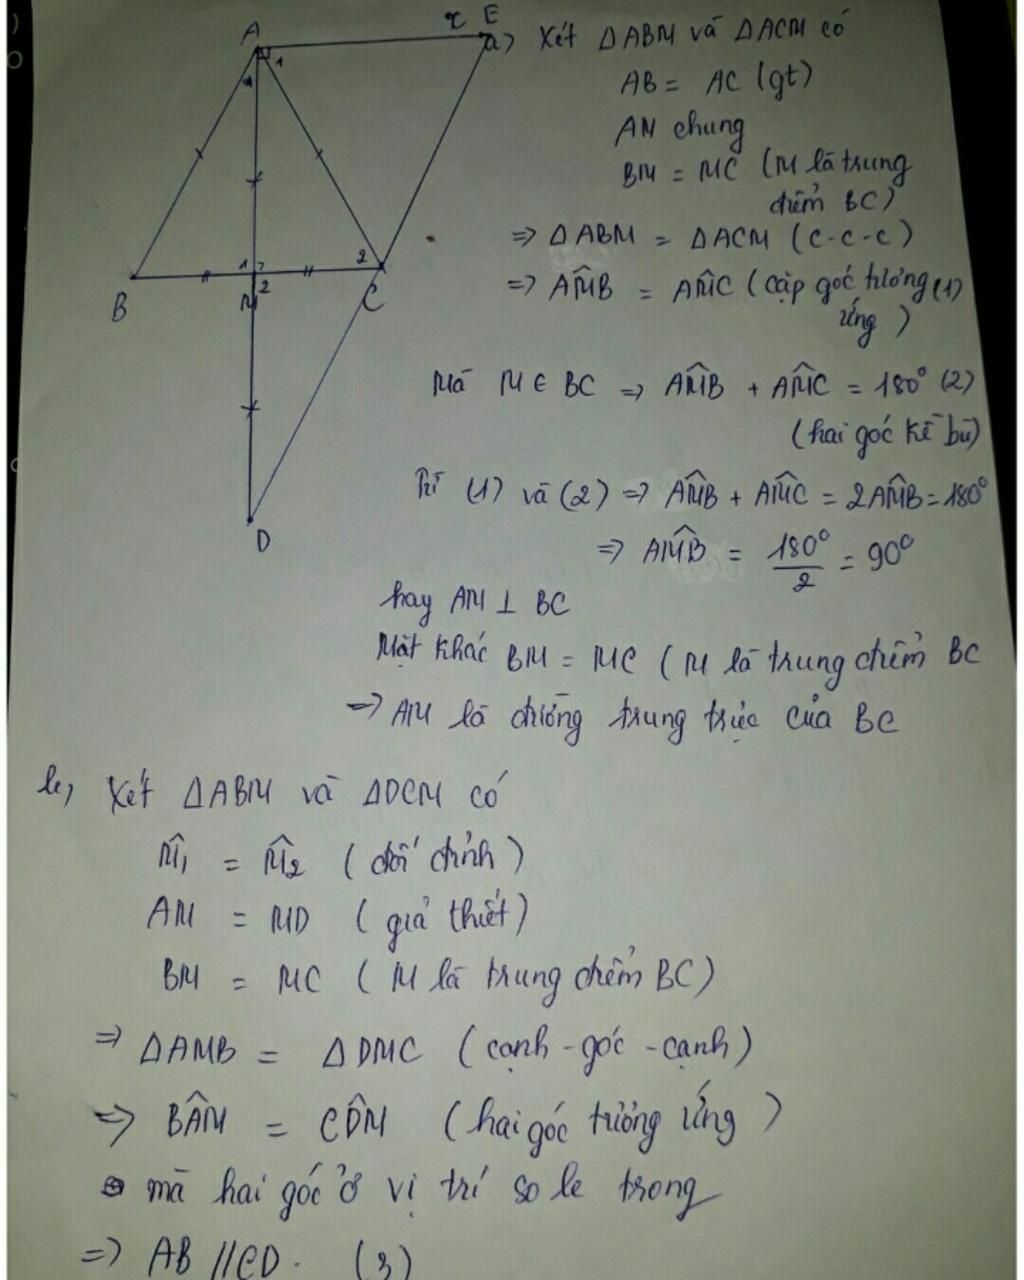 A
x E
1
B
1
2
M
2
C
D
a) Xét ΔABM và ΔACM có
AB = AC (gt)
AM chung
BM = MC (M là trung
điểm BC)
=> ΔABM = ΔACM (c-c-c)
=> AM̂B = AM̂C (cặp góc tương (1)
ứng)
Mà M ∈ BC => AM̂B + AM̂C = 180° (2)
(hai góc kề bù)
Từ (1) và (2) => AM̂B + AM̂C = 2AM̂B = 180°
=> AM̂B = 180°/2 = 90°
hay AM ⊥ BC
Mặt khác BM = MC (M là trung điểm BC
=> AM là đường trung trực của BC
b, Xét ΔABM và ΔDCM có
M̂1 = M̂2 (đối đỉnh)
AM = MD (giả thiết)
BM = MC (M là trung điểm BC)
=> ΔAMB = ΔDMC (cạnh - góc - cạnh)
=> BÂM = CD̂M (hai góc tương ứng)
mà hai góc ở vị trí so le trong
=> AB // CD. (3)